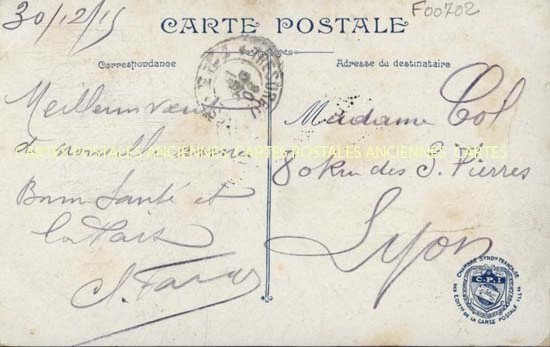 30/12/15
F00702
CARTE POSTALE
Correspondance
Adresse du destinataire
Meilleurs voeux
de nouvelle année
CARTES POSTALES ANCIENNES CARTES POSTALES ANCIENNES CARTES
Bonne Santé et
la Paix
Madame Col
80 Rue des S. Pierres
Lyon
CHAMBRE SYND. FRANÇAISE
C.P.I
DES EDIT. DE LA CARTE POSTALE ILL.